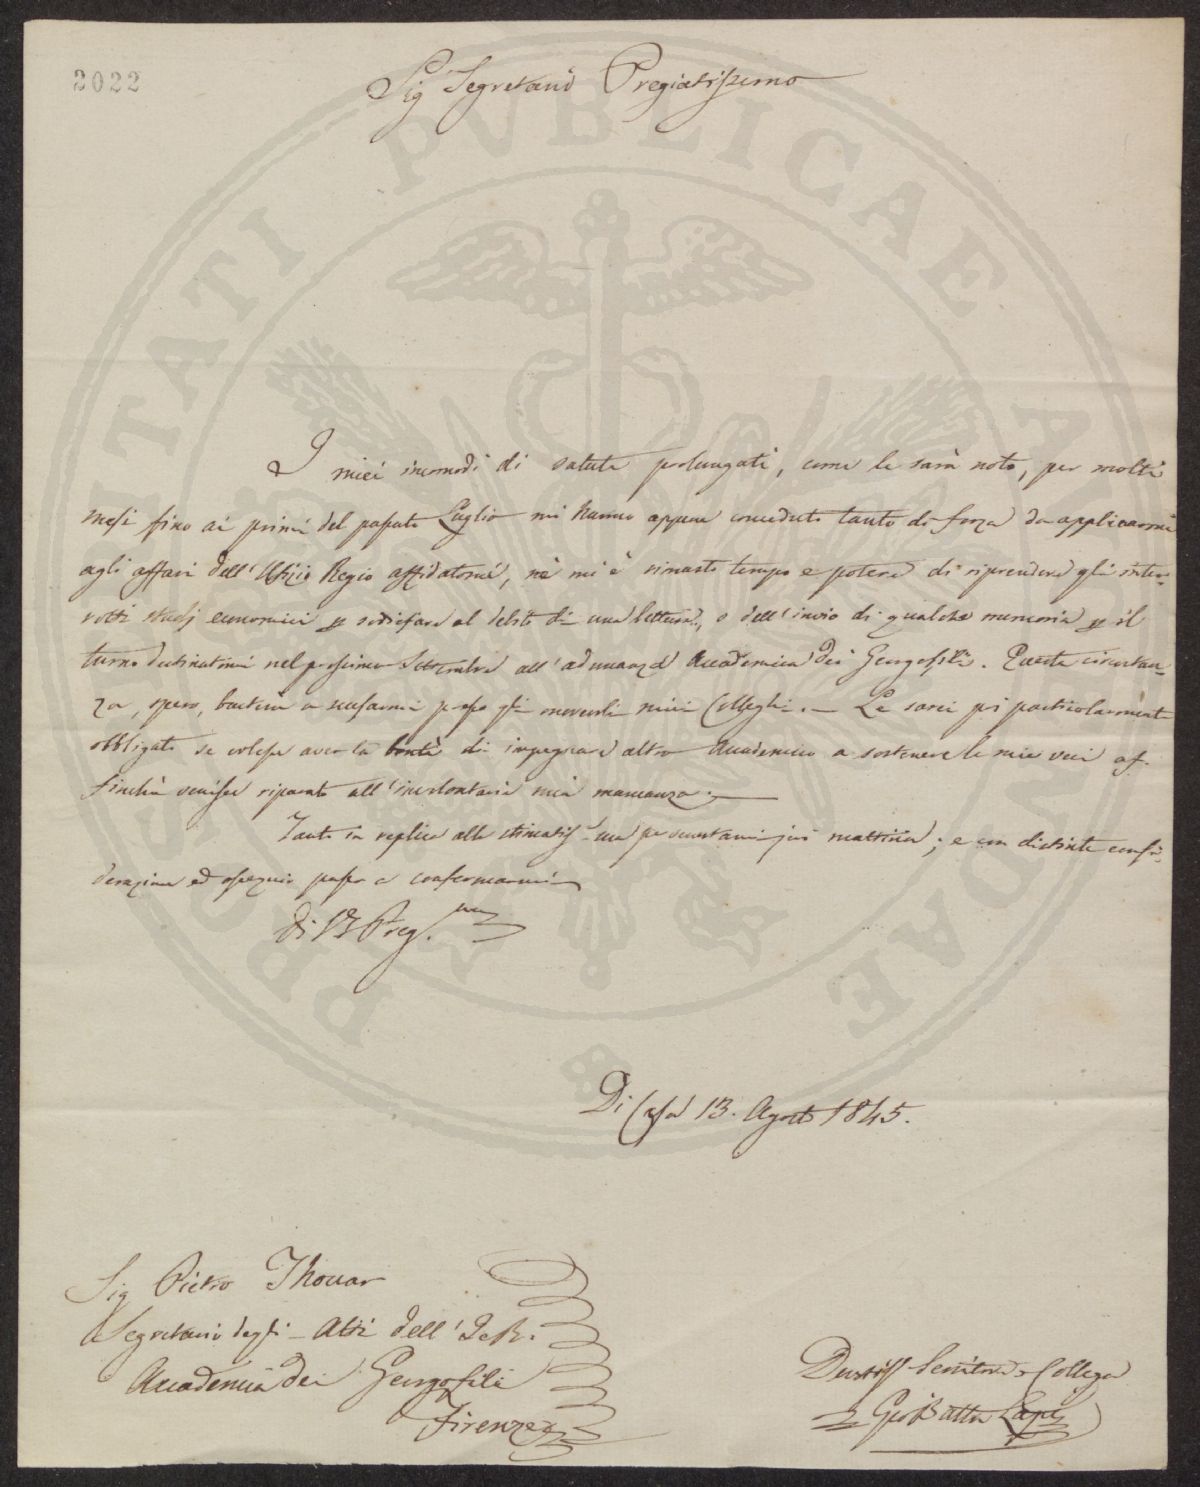 2022
Sig Segretario Pregiatissimo
PROSPERITATI PVBLICAE AVGENDAE
I miei incomodi di salute prolungati, come le sarà noto, per molti
mesi fino ai primi del passato Luglio mi hanno appena conceduto tanto di forza da applicarmi
agli affari dell'Ufizio Regio affidatomi, nè mi è rimasto tempo e potere di riprendere gli inter-
rotti studj economici p sodisfare al debito di una lettura, o dell'invio di qualche memoria p il
turno destinatomi nel prossimo Settembre all'adunanza Accademica dei Georgofili. Questa circostan-
za, spero, basterà a scusarmi presso gli onorevoli miei Colleghi. — Le sarei poi particolarmente
obbligato se volesse aver la bontà di impegnare altro Accademico a sostenere le mie veci af-
finchè venisse riparato all'involontaria mia mancanza. —
Tanto in replica alla stimatiss.ma pervenutami jeri mattina; e con distinta consi-
derazione ed ossequio passo a confermarmi
Di VS Preg.ma
Di Casa 13. Agosto 1845.
Sig Pietro Thouar
Segretario degli Atti dell'I e R.
Accademia dei Georgofili
Firenze
Devotiss Servitore e Collega
Gio Batta Lapi